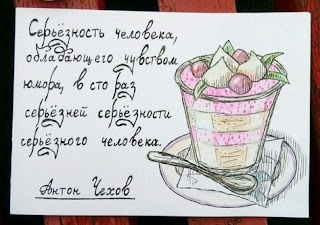 Серьёзность человека,
обладающего чувством
юмора, в сто раз
серьёзней серьёзности
серьёзного человека.
Антон Чехов